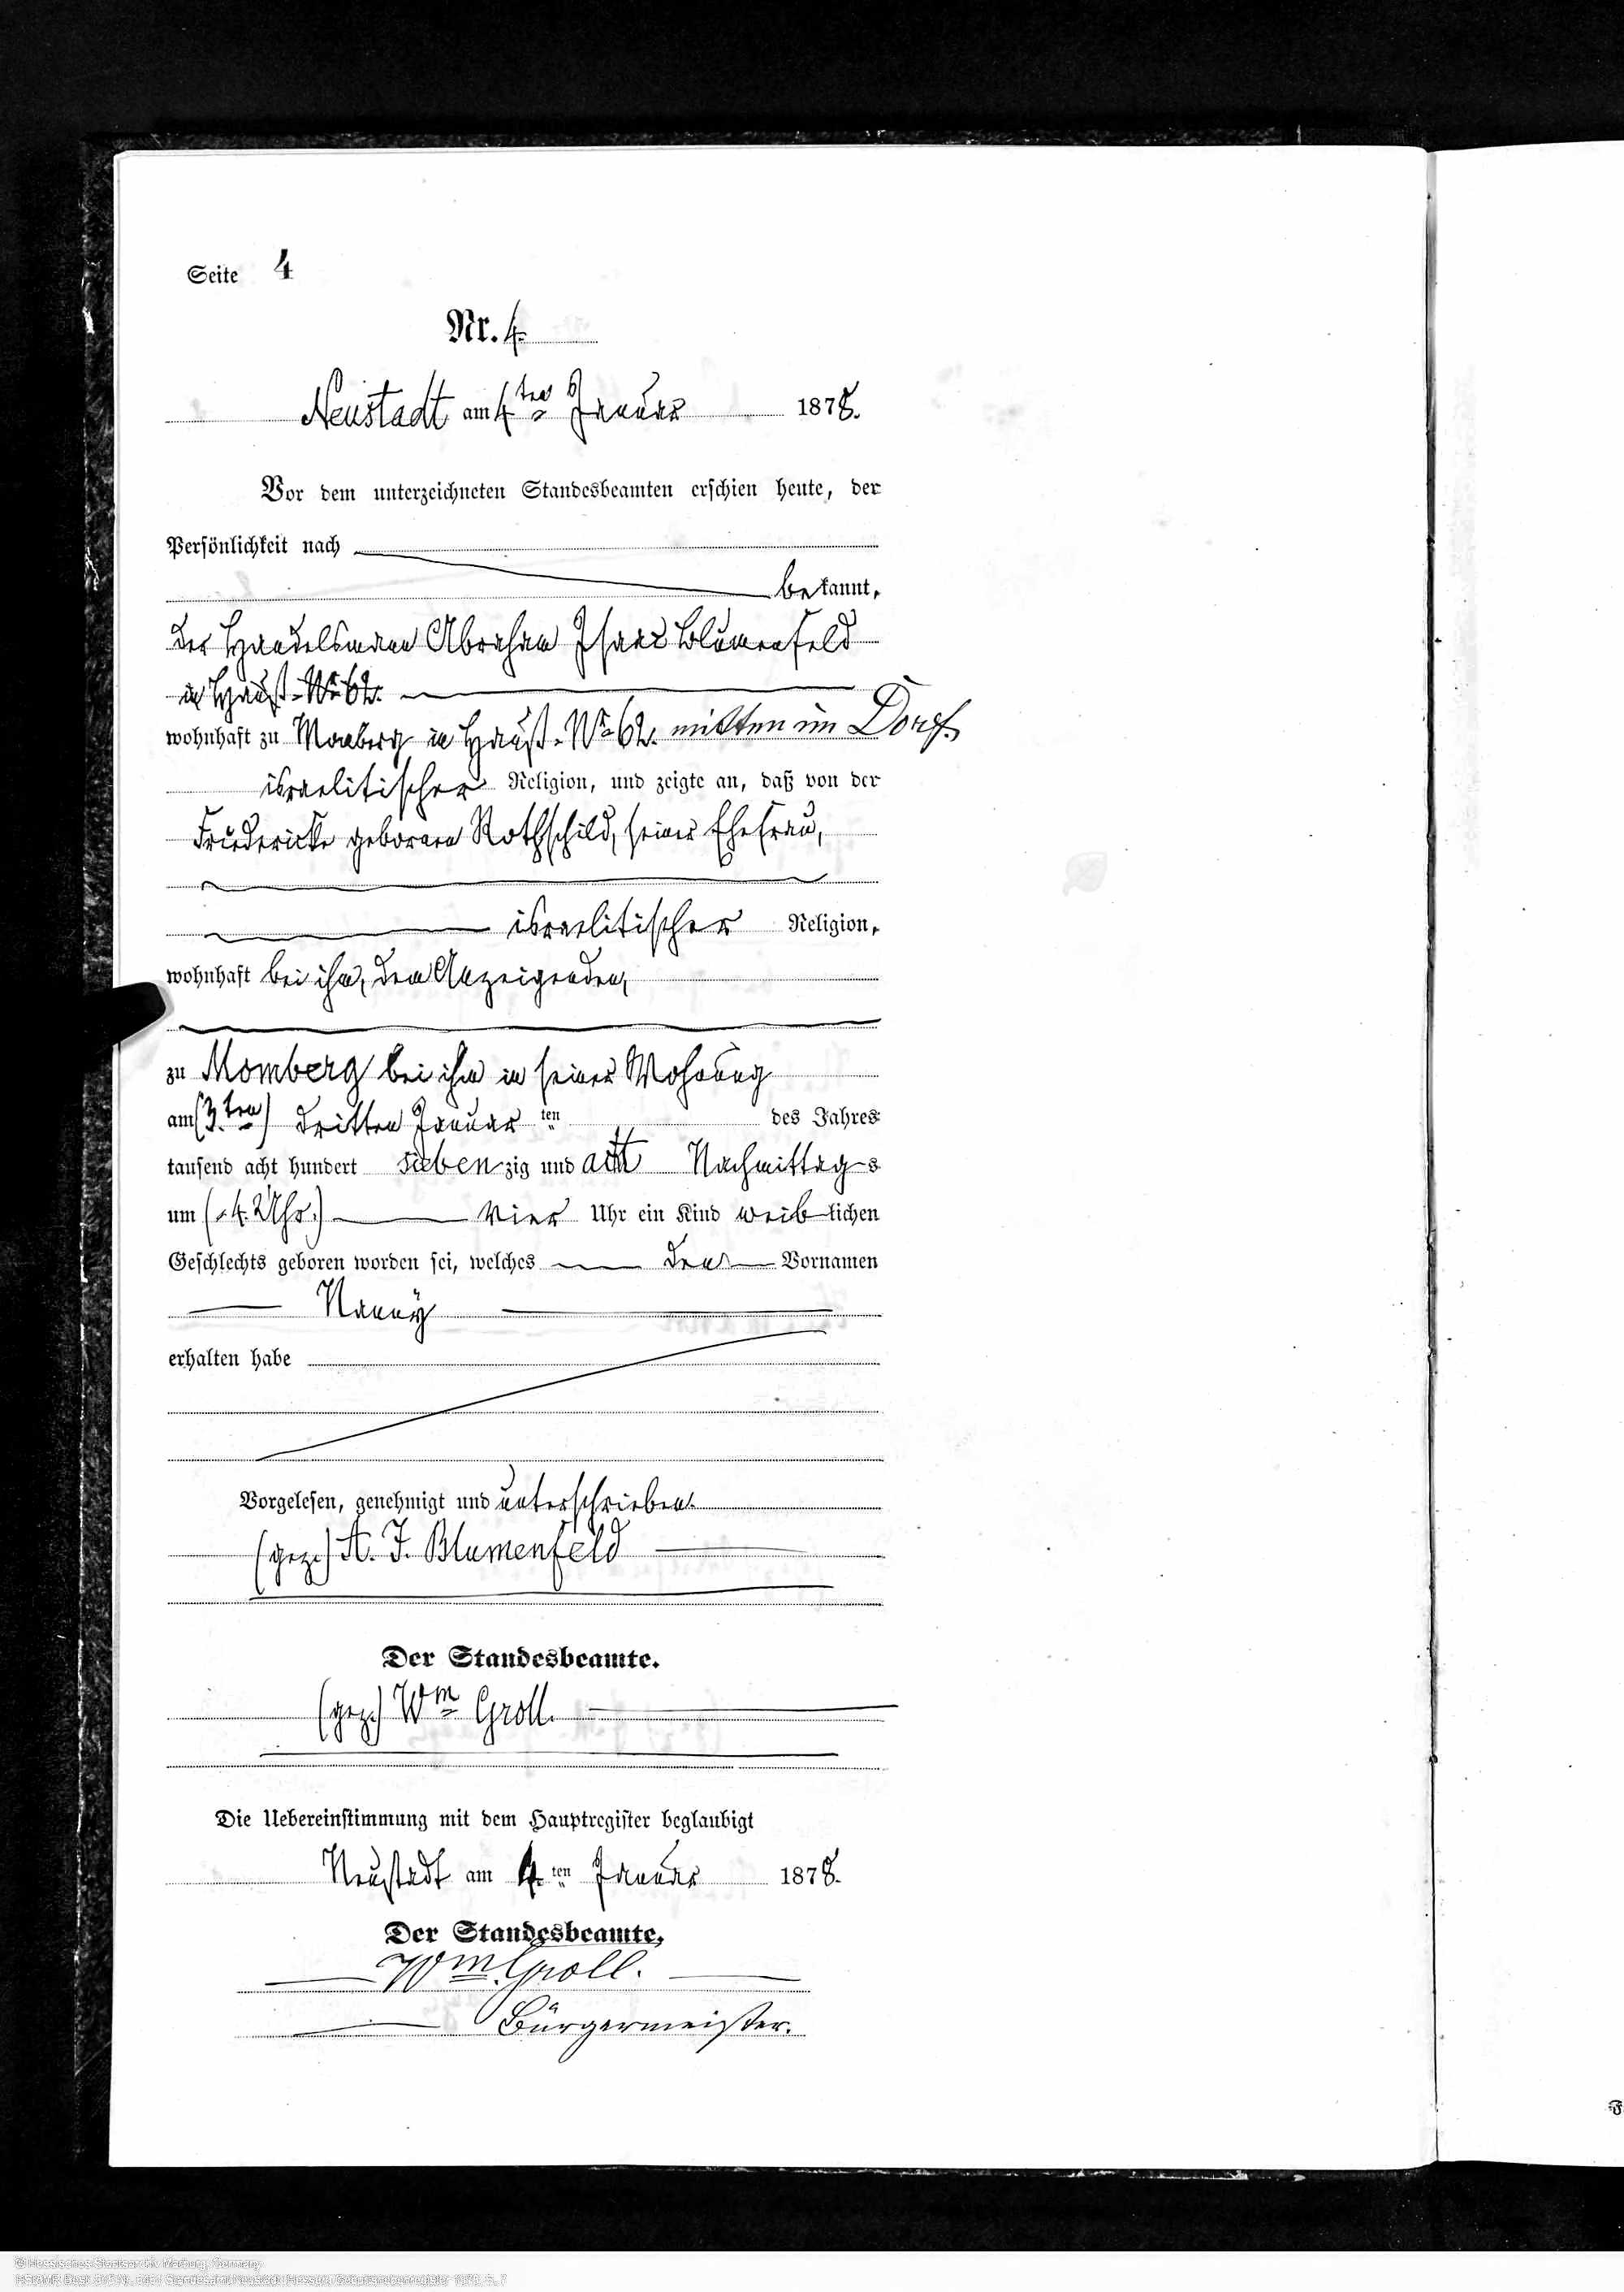 Seite 4
Nr. 4.
Neustadt am 4ten Januar 1878.
Vor dem unterzeichneten Standesbeamten erschien heute, der
Persönlichkeit nach
bekannt,
der Handelsmann Abraham Isaac Blumenfeld
in Hauß-No 62.
wohnhaft zu Momberg in Hauß-No 62. mitten im Dorf.
israelitischer Religion, und zeigte an, daß von der
Friedericke geborenen Rothschild, seiner Ehefrau,
israelitischer Religion,
wohnhaft bei ihm, dem Anzeigenden,
zu Momberg bei ihm in seiner Wohnung
am (3.ten) dritten Januar ten des Jahres
tausend acht hundert siebenzig und acht Nachmittags
um (4. Uhr.) vier Uhr ein Kind weiblichen
Geschlechts geboren worden sei, welches den Vornamen
Nanny
erhalten habe
Vorgelesen, genehmigt und unterschrieben.
(gez.) A. J. Blumenfeld
Der Standesbeamte.
(gez.) Wm Groll.
Die Uebereinstimmung mit dem Hauptregister beglaubigt
Neustadt am 4.ten Januar 1878.
Der Standesbeamte,
Wm Groll.
Bürgermeister.
© Hessisches Staatsarchiv Marburg, Germany